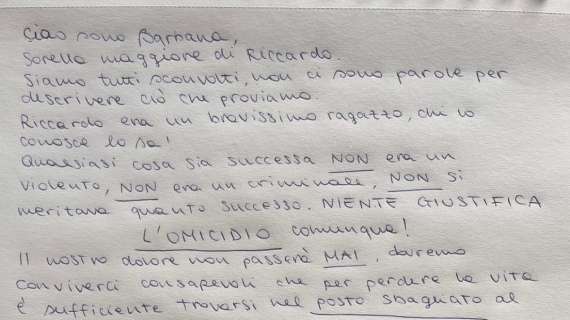 Ciao sono Barbara,
sorella maggiore di Riccardo.
Siamo tutti sconvolti, non ci sono parole per
descrivere ciò che proviamo.
Riccardo era un bravissimo ragazzo, chi lo
conosce lo sa!
Qualsiasi cosa sia successa NON era un
violento, NON era un criminale, NON si
meritava quanto successo. NIENTE GIUSTIFICA
L'OMICIDIO comunque!
Il nostro dolore non passerà MAI, dovremo
conviverci consapevoli che per perdere la vita
è sufficiente trovarsi nel posto sbagliato al